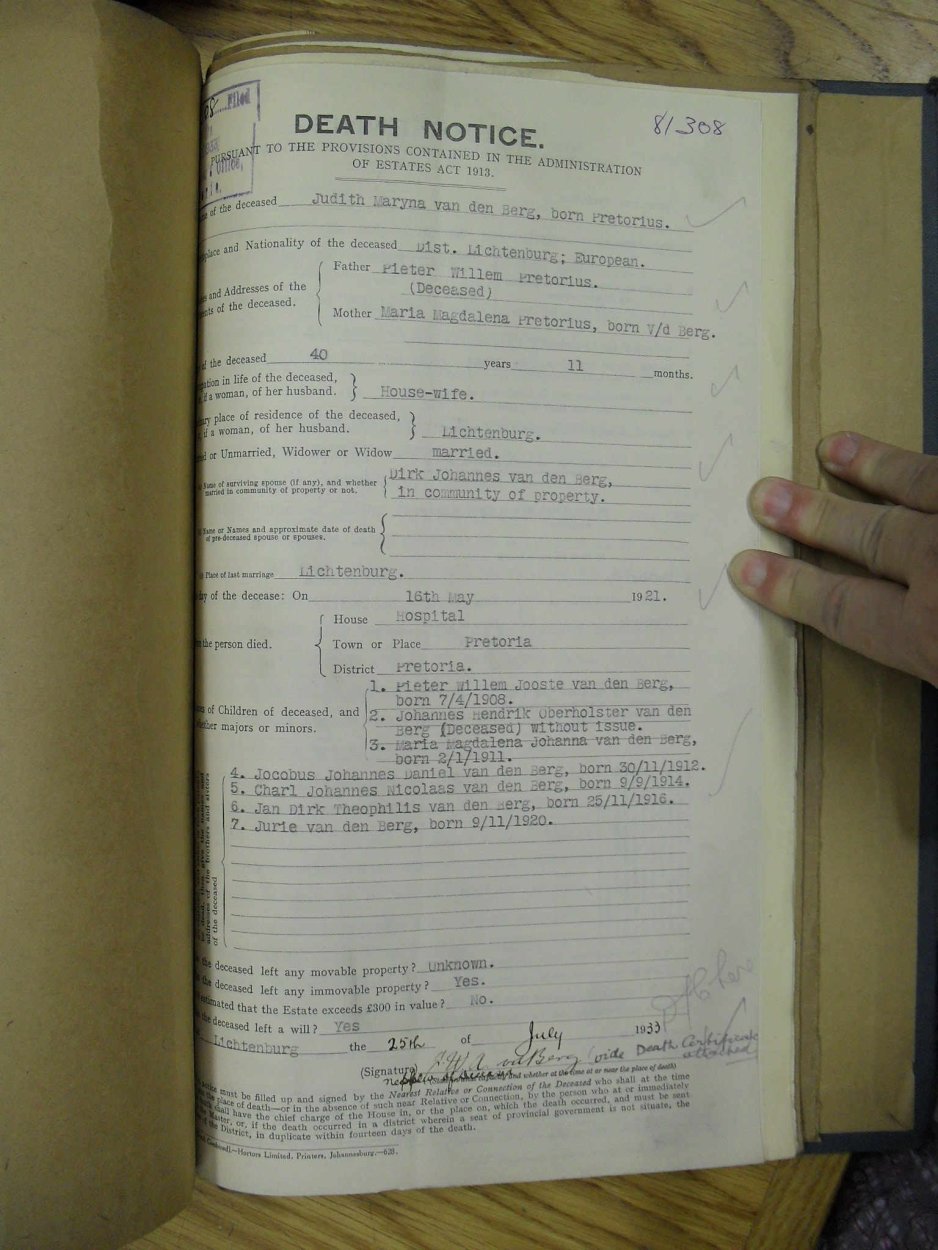 8 Filed
Office,
DEATH NOTICE.
81308
PURSUANT TO THE PROVISIONS CONTAINED IN THE ADMINISTRATION
OF ESTATES ACT 1913.
of the deceased Judith Maryna van den Berg, born Pretorius.
place and Nationality of the deceased Dist. Lichtenburg; European.
Father Pieter Willem Pretorius.
(Deceased)
and Addresses of the
of the deceased.
Mother Maria Magdalena Pretorius, born v/d Berg.
of the deceased 40 years 11 months.
in life of the deceased,
if a woman, of her husband. House-wife.
place of residence of the deceased,
if a woman, of her husband. Lichtenburg.
or Unmarried, Widower or Widow married.
Name of surviving spouse (if any), and whether
married in community of property or not.
Dirk Johannes van den Berg,
in community of property.
Name or Names and approximate date of death
of pre-deceased spouse or spouses.
Place of last marriage Lichtenburg.
day of the decease: On 16th May 1921.
House Hospital
the person died. Town or Place Pretoria
District Pretoria.
of Children of deceased, and
whether majors or minors.
1. Pieter Willem Jooste van den Berg,
born 7/4/1908.
2. Johannes Hendrik Oberholster van den
Berg (Deceased) without issue.
3. Maria Magdalena Johanna van den Berg,
born 2/1/1911.
4. Jocobus Johannes Daniel van den Berg, born 30/11/1912.
5. Charl Johannes Nicolaas van den Berg, born 9/9/1914.
6. Jan Dirk Theophilis van den Berg, born 25/11/1916.
7. Jurie van den Berg, born 9/11/1920.
addresses of the brothers and sisters
of the deceased
the deceased left any movable property? Unknown.
the deceased left any immovable property? Yes.
estimated that the Estate exceeds £300 in value? No.
the deceased left a will? Yes
Lichtenburg the 25th of July 1933
(Signature) vd Berg (vide Death Certificate
attached
and whether at the time at or near the place of death)
notice must be filled up and signed by the Nearest Relative or Connection of the Deceased who shall at the time
place of death—or in the absence of such near Relative or Connection, by the person who at or immediately
shall have the chief charge of the House in, or the place on, which the death occurred, and must be sent
Master, or, if the death occurred in a district wherein a seat of provincial government is not situate, the
District, in duplicate within fourteen days of the death.
Hortors Limited, Printers, Johannesburg.—628.